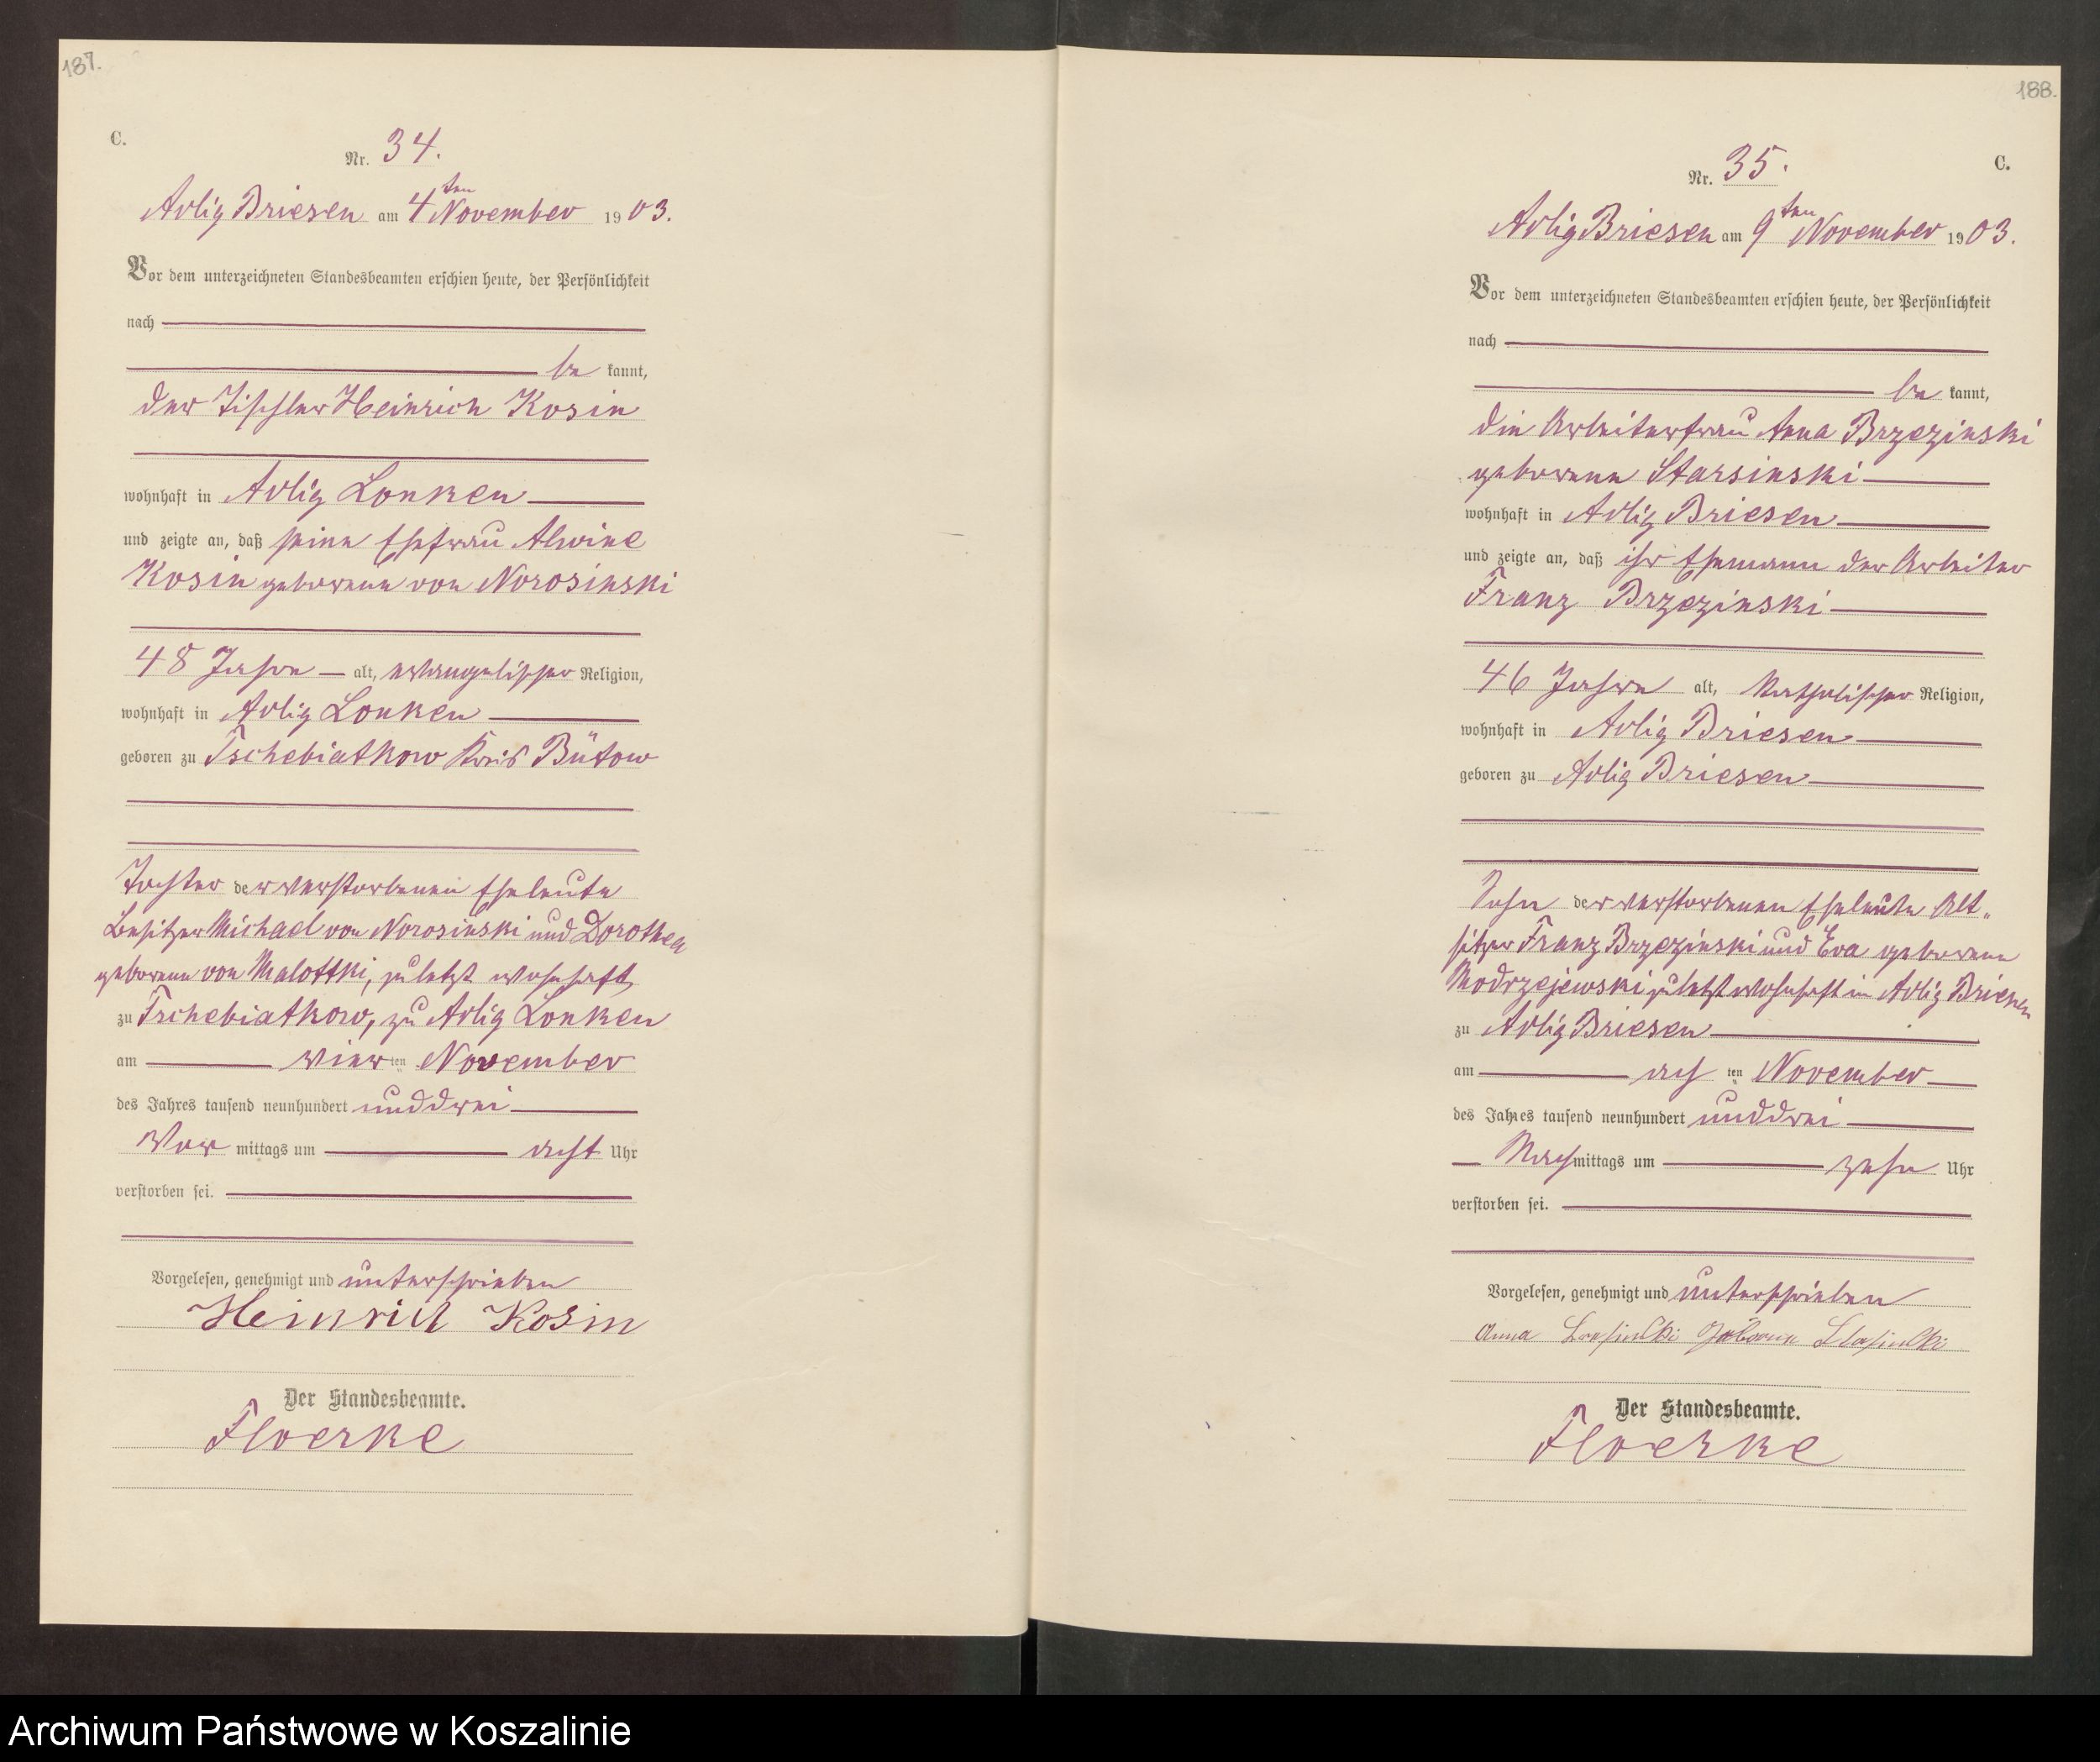 187.
C.
Nr. 34.
Adlig Briesen am 4ten November 1903.
Vor dem unterzeichneten Standesbeamten erschien heute, der Persönlichkeit
nach
be kannt,
der Tischler Heinrich Kosin
wohnhaft in Adlig Lonken
und zeigte an, daß seine Ehefrau Alwine
Kosin geborene von Norosinski
48 Jahre alt, evangelischer Religion,
wohnhaft in Adlig Lonken
geboren zu Tschebiatkow Kreis Bütow
Tochter der verstorbenen Eheleute
Besitzer Michael von Norosinski und Dorothea
geborene von Malottki, zuletzt wohnhaft
zu Tschebiatkow, zu Adlig Lonken
am vierten November
des Jahres tausend neunhundert unddrei
Vor mittags um acht Uhr
verstorben sei.
Vorgelesen, genehmigt und unterschrieben
Heinrich Kosin
Der Standesbeamte.
Floerke
188.
C.
Nr. 35.
Adlig Briesen am 9ten November 1903.
Vor dem unterzeichneten Standesbeamten erschien heute, der Persönlichkeit
nach
be kannt,
die Arbeiterfrau Anna Brzezinski
geborene Starsinski
wohnhaft in Adlig Briesen
und zeigte an, daß ihr Ehemann der Arbeiter
Franz Brzezinski
46 Jahre alt, katholischer Religion,
wohnhaft in Adlig Briesen
geboren zu Adlig Briesen
Sohn der verstorbenen Eheleute Alt„
sitzer Franz Brzezinski und Eva geborene
Modrzejewski zuletzt wohnhaft in Adlig Briesen
zu Adlig Briesen
am achten November
des Jahres tausend neunhundert unddrei
Nachmittags um zehn Uhr
verstorben sei.
Vorgelesen, genehmigt und unterschrieben
Anna
Der Standesbeamte.
Floerke
Archiwum Państwowe w Koszalinie